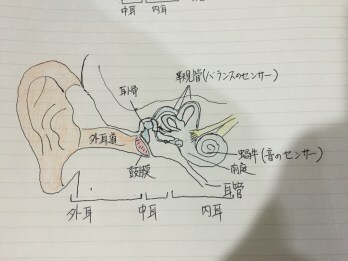 中耳 内耳
半規管(バランスのセンサー)
耳小骨
外耳道
蝸牛(音のセンサー)
鼓膜
前庭
耳管
外耳 中耳 内耳